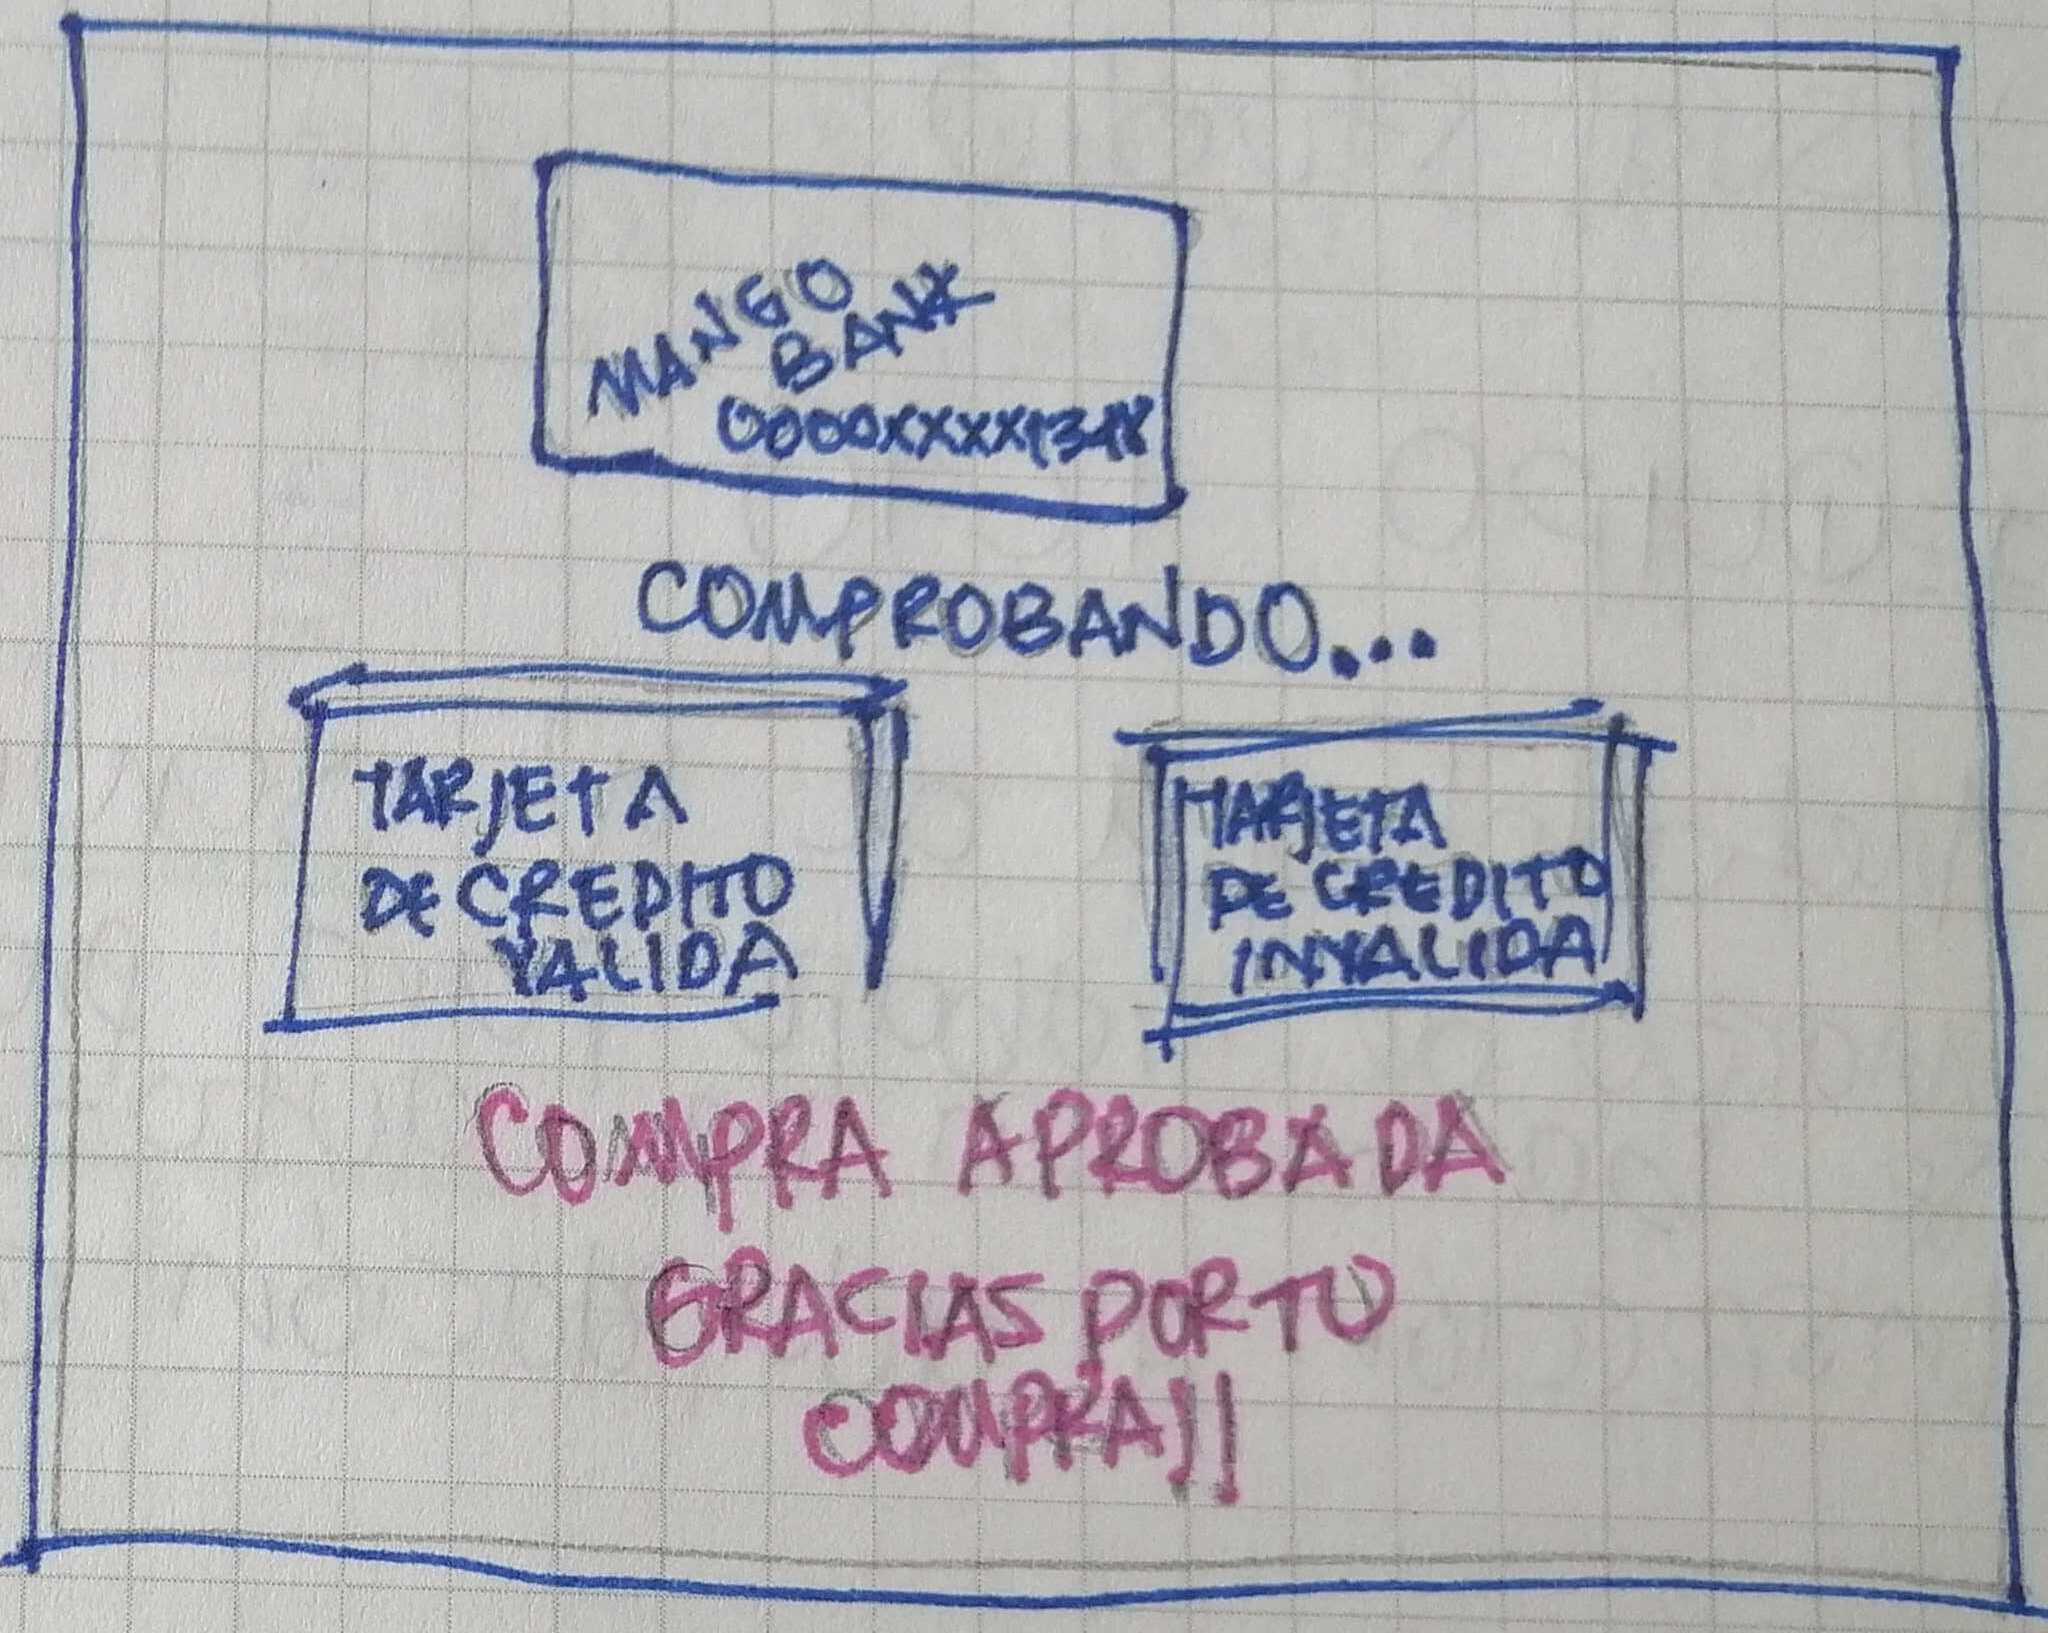 MANGO
BANK
0000XXXX1348
COMPROBANDO...
TARJETA
DE CREDITO
VALIDA
TARJETA
DE CREDITO
INVALIDA
COMPRA APROBADA
GRACIAS POR TU
COMPRA!!